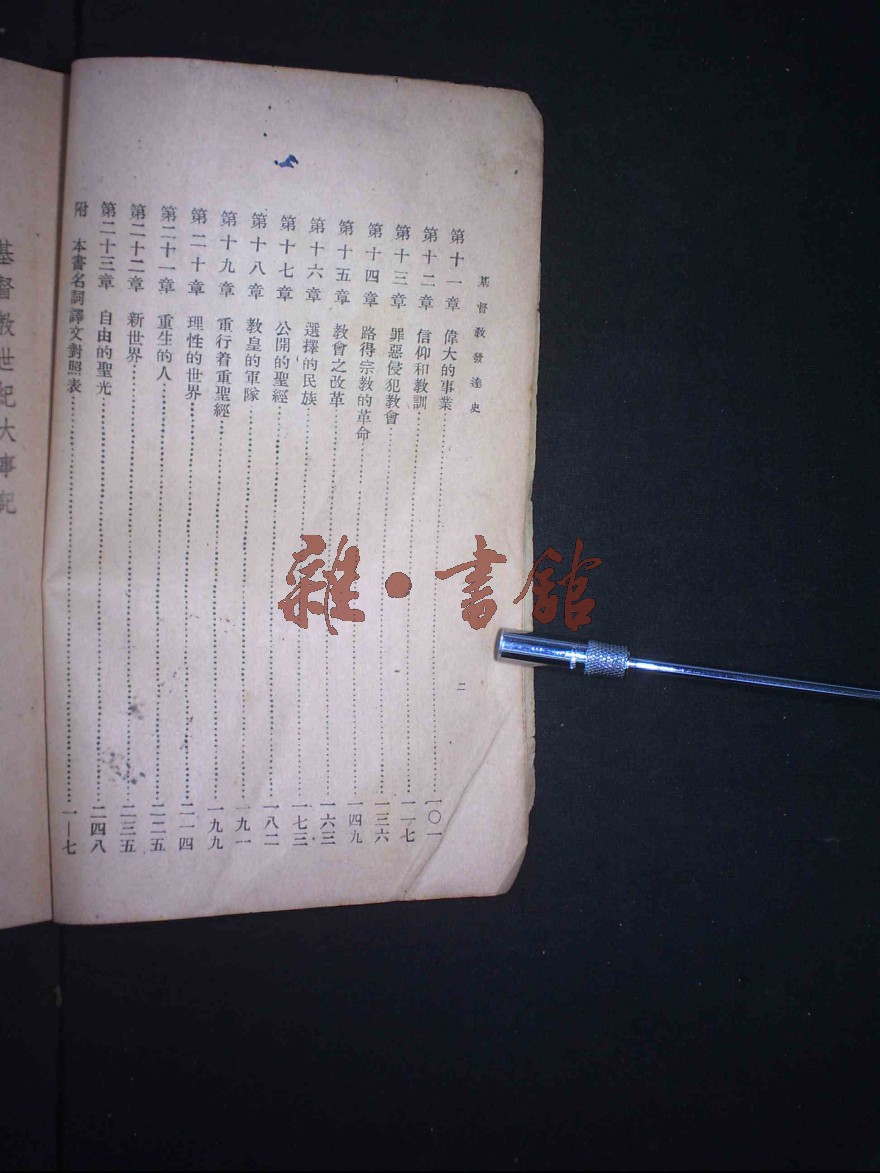 基督教發達史
第十一章 偉大的事業 一〇一
第十二章 信仰和教訓 一一七
第十三章 罪惡侵犯教會 一三六
第十四章 路得宗教的革命 一四九
第十五章 教會之改革 一六三
第十六章 選擇的民族 一七三
第十七章 公開的聖經 一八二
第十八章 教皇的軍隊 一九一
第十九章 重行着重聖經 一九九
第二十章 理性的世界 二一四
第二十一章 重生的人 二二五
第二十二章 新世界 二三五
第二十三章 自由的聖光 二四八
附 本書名詞譯文對照表 一—七
二
基督教世紀大事記
雜·書館